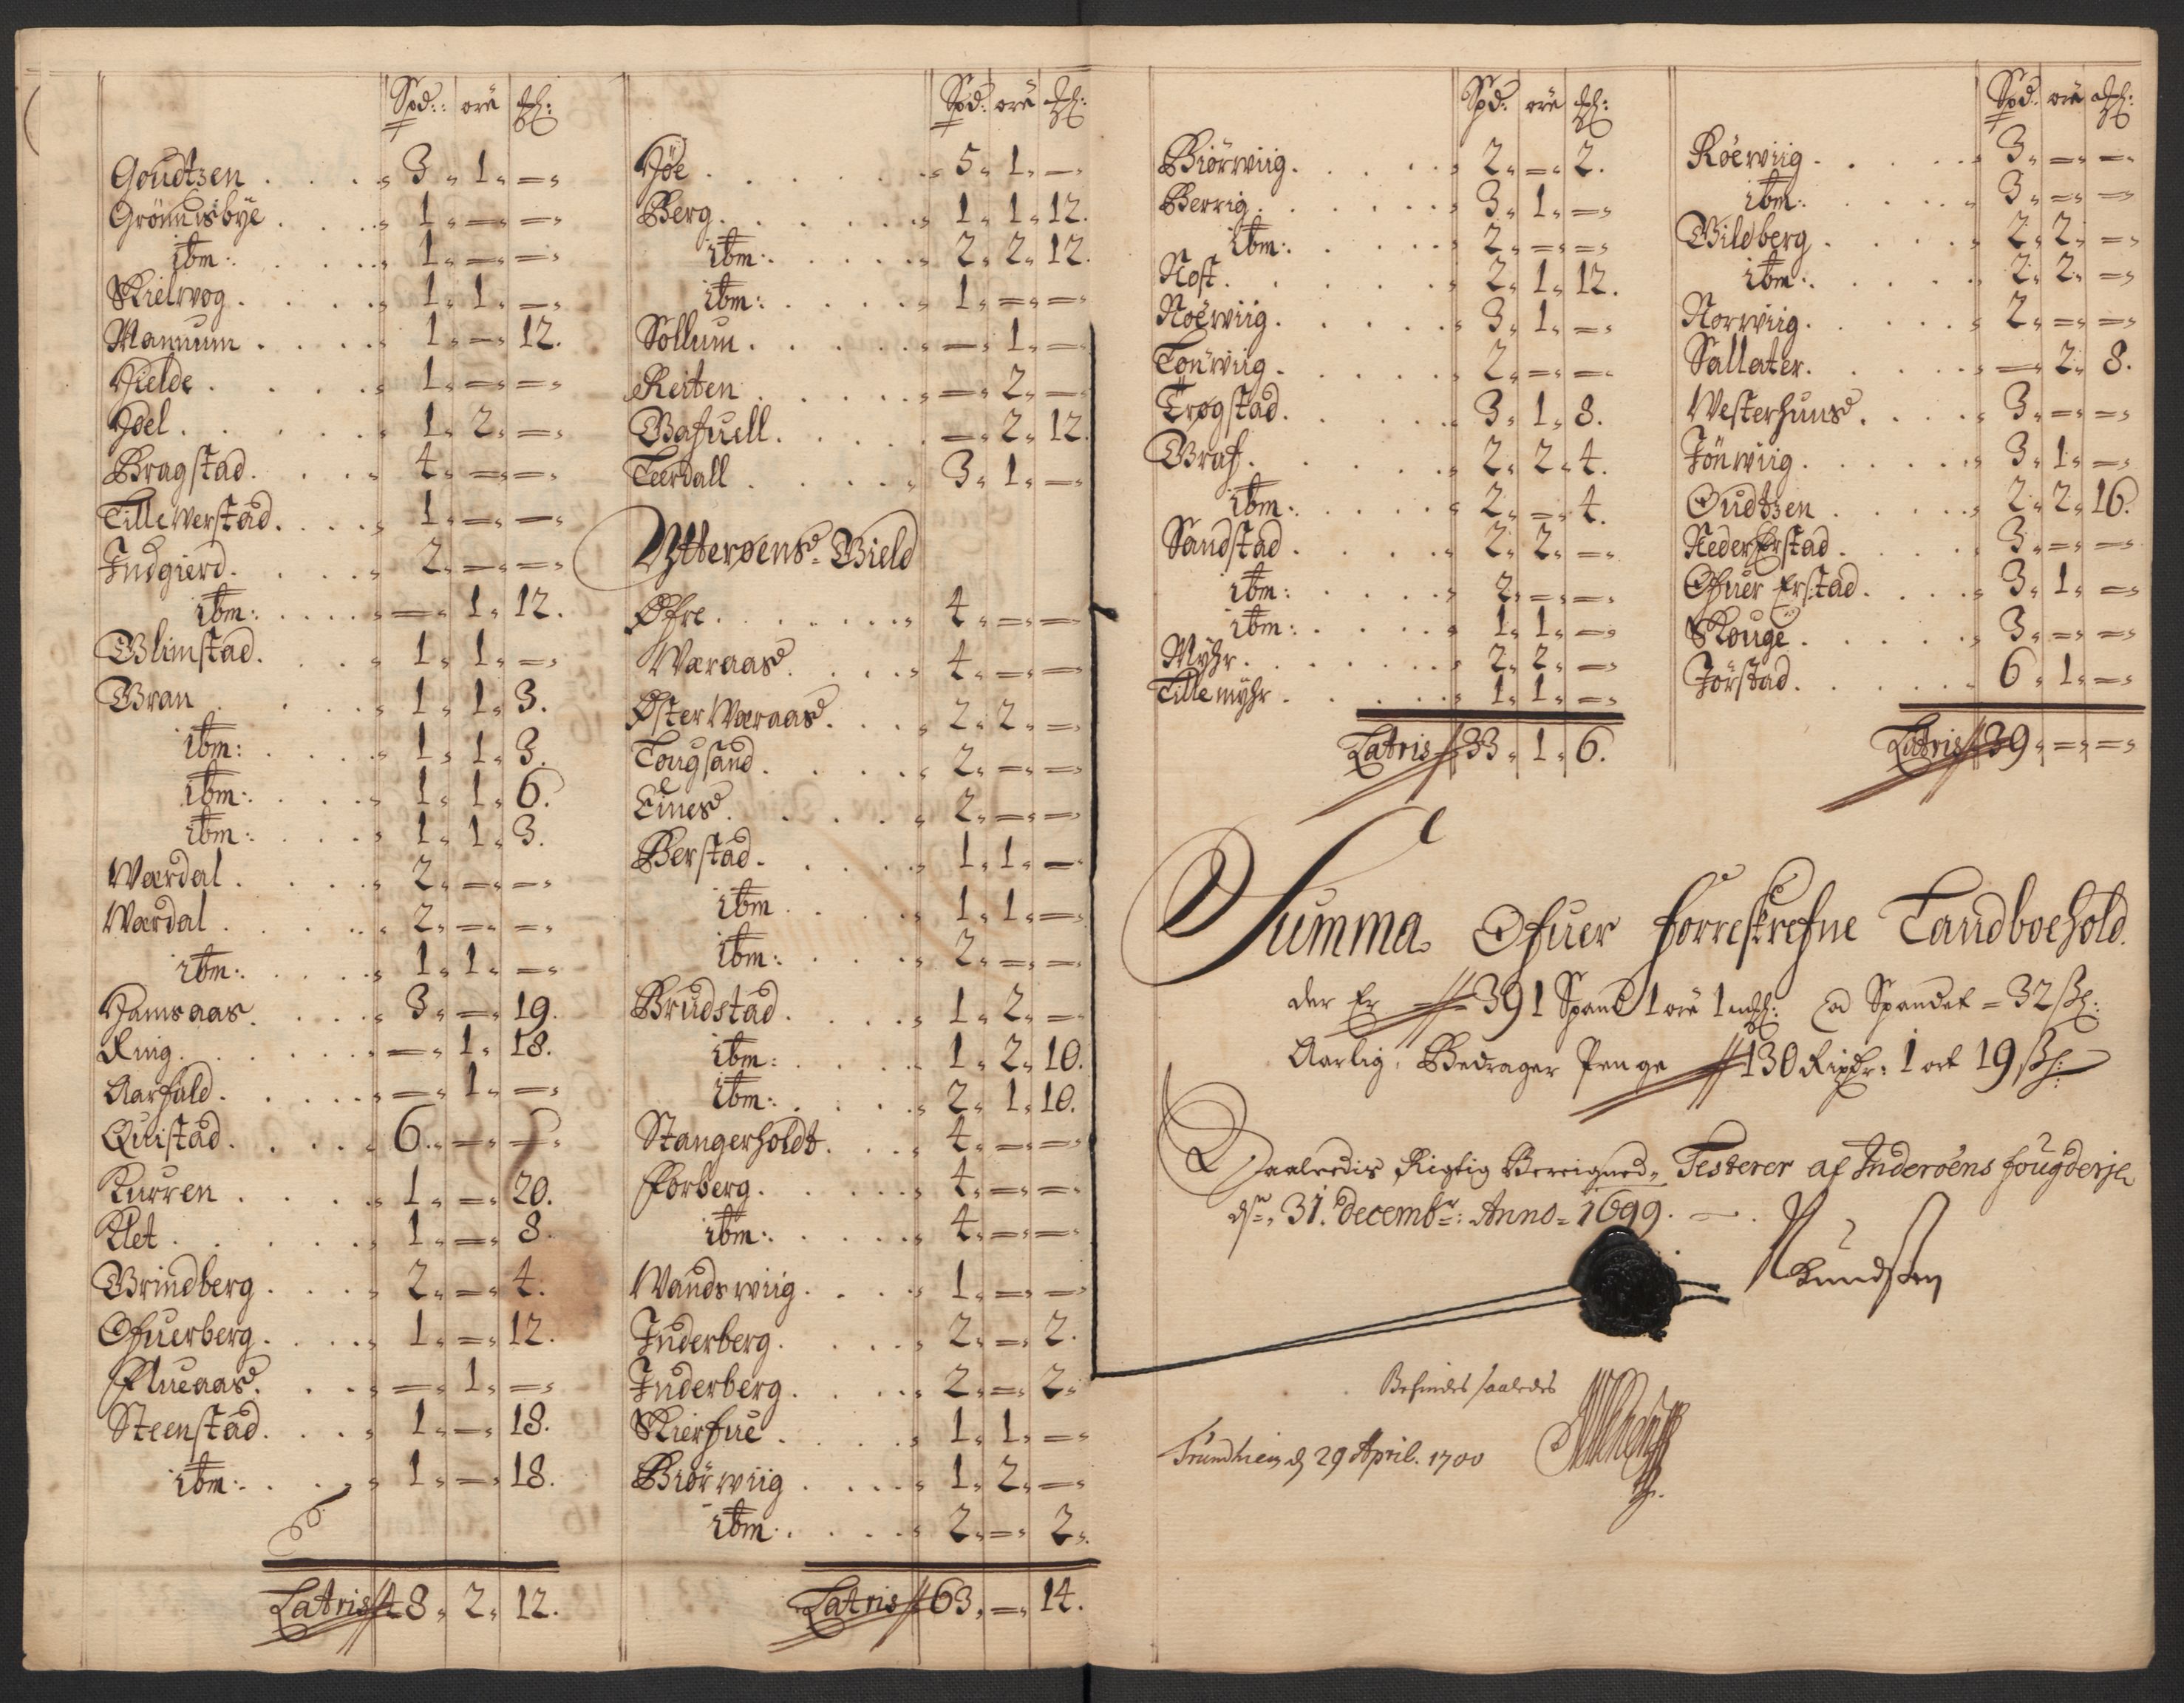 Spd: ore
Goudtzen . . . 3 " 1 " = "
Grönnisbÿe . . . 1 " = " = "
ibm: . . . 1 " = " = "
Skielwog . . . 1 " 1 " = "
Mannum . . . 1 " = " 12.
Hielde . . . 1 " = " = "
Hoel . . . 1 " 2 " = "
Bragstad . . . 4 " = " = "
Lillewerstad . . . 1 " = " = "
Indgierd . . . 2 " = " = "
ibm: . . . = " 1 " 12.
Glimstad . . . 1 " 1 " = "
Gran . . . 1 " 1 " 3.
ibm: . . . 1 " 1 " 3.
ibm: . . . 1 " 1 " 6.
ibm: . . . 1 " 1 " 3.
Wærdal . . . 2 " = " = "
Wardal . . . 2 " = " = "
ibm: . . . 1 " 1 " = "
Hamsaas . . . 3 " = " 19.
Ring . . . = " 1 " 18.
Aarfald . . . = " 1 " = "
Quistad . . . 6 " = " = "
Kurren . . . 1 " = " 20.
Klet . . . 1 " = " 8.
Grindberg . . . 2 " = " 4.
Ofuerberg . . . 1 " = " 12.
Flueaas . . . = " 1 " = "
Steenstad . . . 1 " = " 18.
ibm: . . . 1 " = " 18.
Latris 48 " 2 " 12.
Spd: ore
Jöe . . . 5 " 1 " = "
Berg . . . 1 " 1 " 12.
ibm: . . . 2 " 2 " 12.
ibm: . . . 1 " = " = "
Sollum . . . = " 1 " = "
Reiten . . . = " 2 " = "
Gafuell . . . = " 2 " 12.
Leerdall . . . 3 " 1 " = "
Ytterøens Gield
Øfre . . . 4 " = " = "
Wæraas . . . 4 " = " = "
Øster Wæraas . . . 2 " 2 " = "
Lougsand . . . 2 " = " = "
Eines . . . 2 " = " = "
Berstad . . . 1 " 1 " = "
ibm . . . 1 " 1 " = "
ibm: . . . 2 " = " = "
Brudstad . . . 1 " 2 " = "
ibm: . . . 1 " 2 " 10.
ibm: . . . 2 " 1 " 10.
Stangerholdt . . . 4 " = " = "
Forberg . . . 4 " = " = "
ibm: . . . 4 " = " = "
Wandswiig . . . 1 " = " = "
Inderberg . . . 2 " = " 2.
Inderberg . . . 2 " = " 2 "
Skierfue . . . 1 " 1 " = "
Biörwiig . . . 1 " 2 " = "
ibm: . . . 2 " = " 2 "
Latris 63 " = " 14.
Spd: ore
Biörwiig . . . 2 " = " 2.
Berrig . . . 3 " 1 " = "
ibm: . . . 2 " = " = "
Nost . . . 2 " 1 " 12.
Noëwiig . . . 3 " 1 " = "
Tonwiig . . . 2 " = " = "
Trøgstad . . . 3 " 1 " 8.
Graf . . . 2 " 2 " 4.
ibm: . . . 2 " = " 4.
Sandstad . . . 2 " 2 " = "
ibm: . . . 2 " = " = "
ibm: . . . 1 " 1 " = "
Mÿhr . . . 2 " 2 " = "
Lille mÿhr . . . 1 " 1 " = "
Latris 33 " 1 " 6.
Spd: ore
Röewiig . . . 3 " = " = "
ibm: . . . 3 " = " = "
Wildberg . . . 2 " 2 " = "
ibm: . . . 2 " 2 " = "
Norwiig . . . 2 " = " = "
Sallater . . . = " 2 " 8.
Westerhuus . . . 3 " = " = "
Jönwiig . . . 3 " 1 " = "
Oudtzen . . . 2 " 2 " 16.
Neder Erstad . . . 3 " = " = "
Ofuer Erstad . . . 3 " 1 " = "
Skouge . . . 3 " = " = "
Jörstad . . . 6 " 1 " = "
Latris 39 " = " = "
Summa Ofuer forreskrefne Landboehold
der Er 391 Spand 1 ore 1 ad Spandet = 32 ß:
Aarlig, Bedrager Penge 130 Rixdr: 1 ort 19 ß:
Saaledis Rigtig Bereigned, Testerer af Inderöens fougderje
dn: 31. decembr: Anno = 1699.
Knudsen
Befindes saaledes
Trundhiem d 29 April. 1700